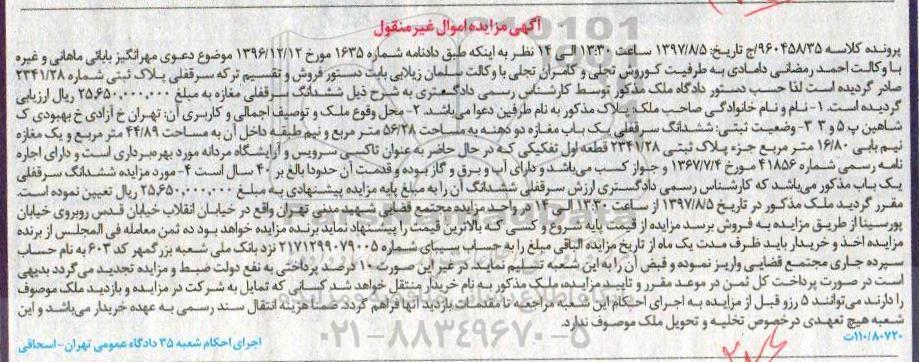 آگهی مزایده اموال غیر منقول
پرونده کلاسه ۹۶۰۴۵۸/۳۵/ج تاریخ: ۱۳۹۷/۸/۵ ساعت ۱۳:۳۰ الی ۱۴ نظر به اینکه طبق دادنامه شماره ۱۶۳۵ مورخ ۱۳۹۶/۱۲/۱۲ موضوع دعوی مهرانگیز بابائی ماهانی و غیره
با وکالت احمد رمضانی دامادی به طرفیت کوروش تجلی و کامران تجلی با وکالت سلمان زیلابی بابت دستور فروش و تقسیم ترکه سرقفلی پلاک ثبتی شماره ۲۳۴۱/۲۸
صادر گردیده است لذا حسب دستور دادگاه ملک مذکور توسط کارشناس رسمی دادگستری به شرح ذیل ششدانگ سرقفلی مغازه به مبلغ ۲۵,۶۵۰,۰۰۰,۰۰۰ ریال ارزیابی
گردیده است. ۱- نام و نام خانوادگی صاحب ملک: پلاک مذکور به نام طرفین دعوا می‌باشد. ۲- محل وقوع ملک و توصیف اجمالی و کاربری آن: تهران خ آزادی خ بهبودی ک
شاهین پ ۵ و ۳ ۳- وضعیت ثبتی: ششدانگ سرقفلی یک باب مغازه دو دهنه به مساحت ۵۶/۲۸ متر مربع و نیم طبقه داخل آن به مساحت ۴۴/۸۹ متر مربع و یک مغازه
نیم بابی ۱۶/۸۰ متر مربع جزء پلاک ثبتی ۲۳۴۱/۲۸ قطعه اول تفکیکی که در حال حاضر به عنوان تاکسی سرویس و آرایشگاه مردانه مورد بهره‌برداری است و دارای اجاره
نامه رسمی شماره ۴۱۸۵۶ مورخ ۱۳۶۷/۷/۴ و جواز کسب می‌باشد و دارای آب و برق و گاز بوده و قدمت آن حدودا بالغ بر ۴۰ سال است ۴- مورد مزایده ششدانگ سرقفلی
یک باب مذکور می‌باشد که کارشناس رسمی دادگستری ارزش سرقفلی ششدانگ آن را به مبلغ پایه مزایده پیشنهادی به مبلغ ۲۵,۶۵۰,۰۰۰,۰۰۰ ریال تعیین نموده است.
مقرر گردید ملک مذکور در تاریخ ۱۳۹۷/۸/۵ از ساعت ۱۳:۳۰ الی ۱۴ در واحد مزایده مجتمع قضایی شهید مدنی تهران واقع در خیابان انقلاب خیابان قدس روبروی خیابان
پورسینا از طریق مزایده به فروش برسد مزایده از قیمت پایه شروع و کسی که بالاترین قیمت را پیشنهاد نماید برنده مزایده خواهد بود ده ثمن معامله فی المجلس از برنده
مزایده اخذ و خریدار باید ظرف مدت یک ماه از تاریخ مزایده الباقی مبلغ را به حساب سیبای شماره ۲۱۷۱۲۹۹۰۷۹۰۰۵ نزد بانک ملی شعبه بزرگمهر کد ۶۰۳ به نام حساب
سپرده جاری مجتمع قضایی واریز نموده و قبض آن را به این شعبه تسلیم نماید در غیر این صورت ۱۰ درصد پرداختی به نفع دولت ضبط و مزایده تجدید می‌گردد بدیهی
است در صورت پرداخت کل ثمن در موعد مقرر و تایید مزایده، ملک مذکور به نام خریدار منتقل خواهد شد کسانی که تمایل به شرکت در مزایده و بازدید ملک موصوف
را دارند می‌توانند ۵ رزو قبل از مزایده به اجرای احکام این شعبه مراجعه تا مقدمات بازدید آنها فراهم گردد ضمنا هزینه انتقال سند رسمی به عهده خریدار می‌باشد و این
شعبه هیچ تعهدی در خصوص تخلیه و تحویل ملک موصوف ندارد.
۱۱۰/۸۰۷۲۰ت اجرای احکام شعبه ۳۵ دادگاه عمومی تهران- اسحاقی
۰۲۱-۸۸۳۴۹۶۷۰-۵